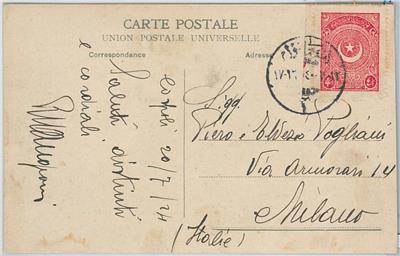 CARTE POSTALE
UNION POSTALE UNIVERSELLE
Correspondance
Adresse
20/7/24
Saluti distinti
e cordiali
Sigg.
Piero e Elvezio Pogliani
Via Armorari 14
Milano
(Italie)